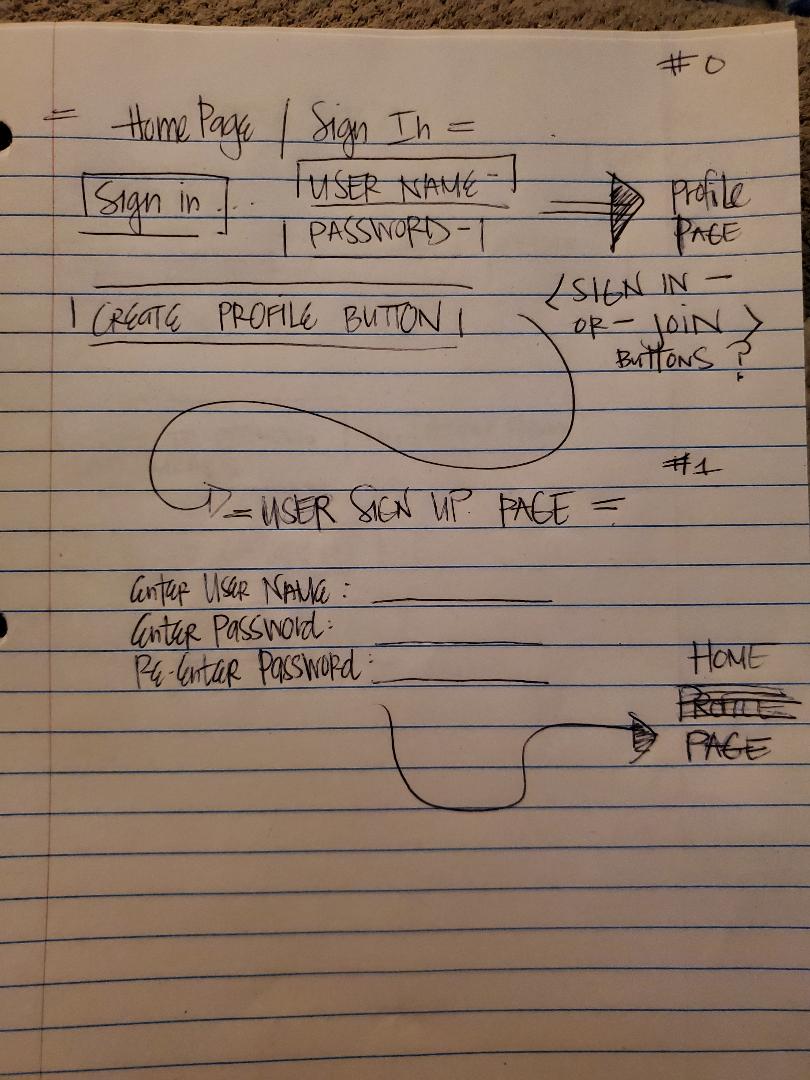 #0
= Home Page / Sign In =
Sign in . . .
USER NAME -
PASSWORD -
Profile
PAGE
CREATE PROFILE BUTTON
< SIGN IN -
OR - JOIN >
BUTTONS ?
#1
= USER SIGN UP PAGE =
Enter User Name :
Enter Password:
Re-Enter Password:
HOME
PROFILE
PAGE